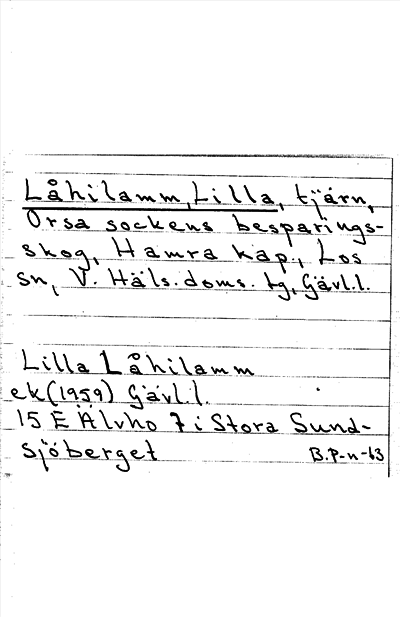 Låhilamm, Lilla, tjärn,
Orsa sockens besparings-
skog, Hamra kap., Los
sn, V. Häls. doms. tg, Gävl.l.
Lilla Låhilamm
ek (1959) Gävl.l.
15 E Älvho 7 i Stora Sund-
sjöberget
B.P-n-63